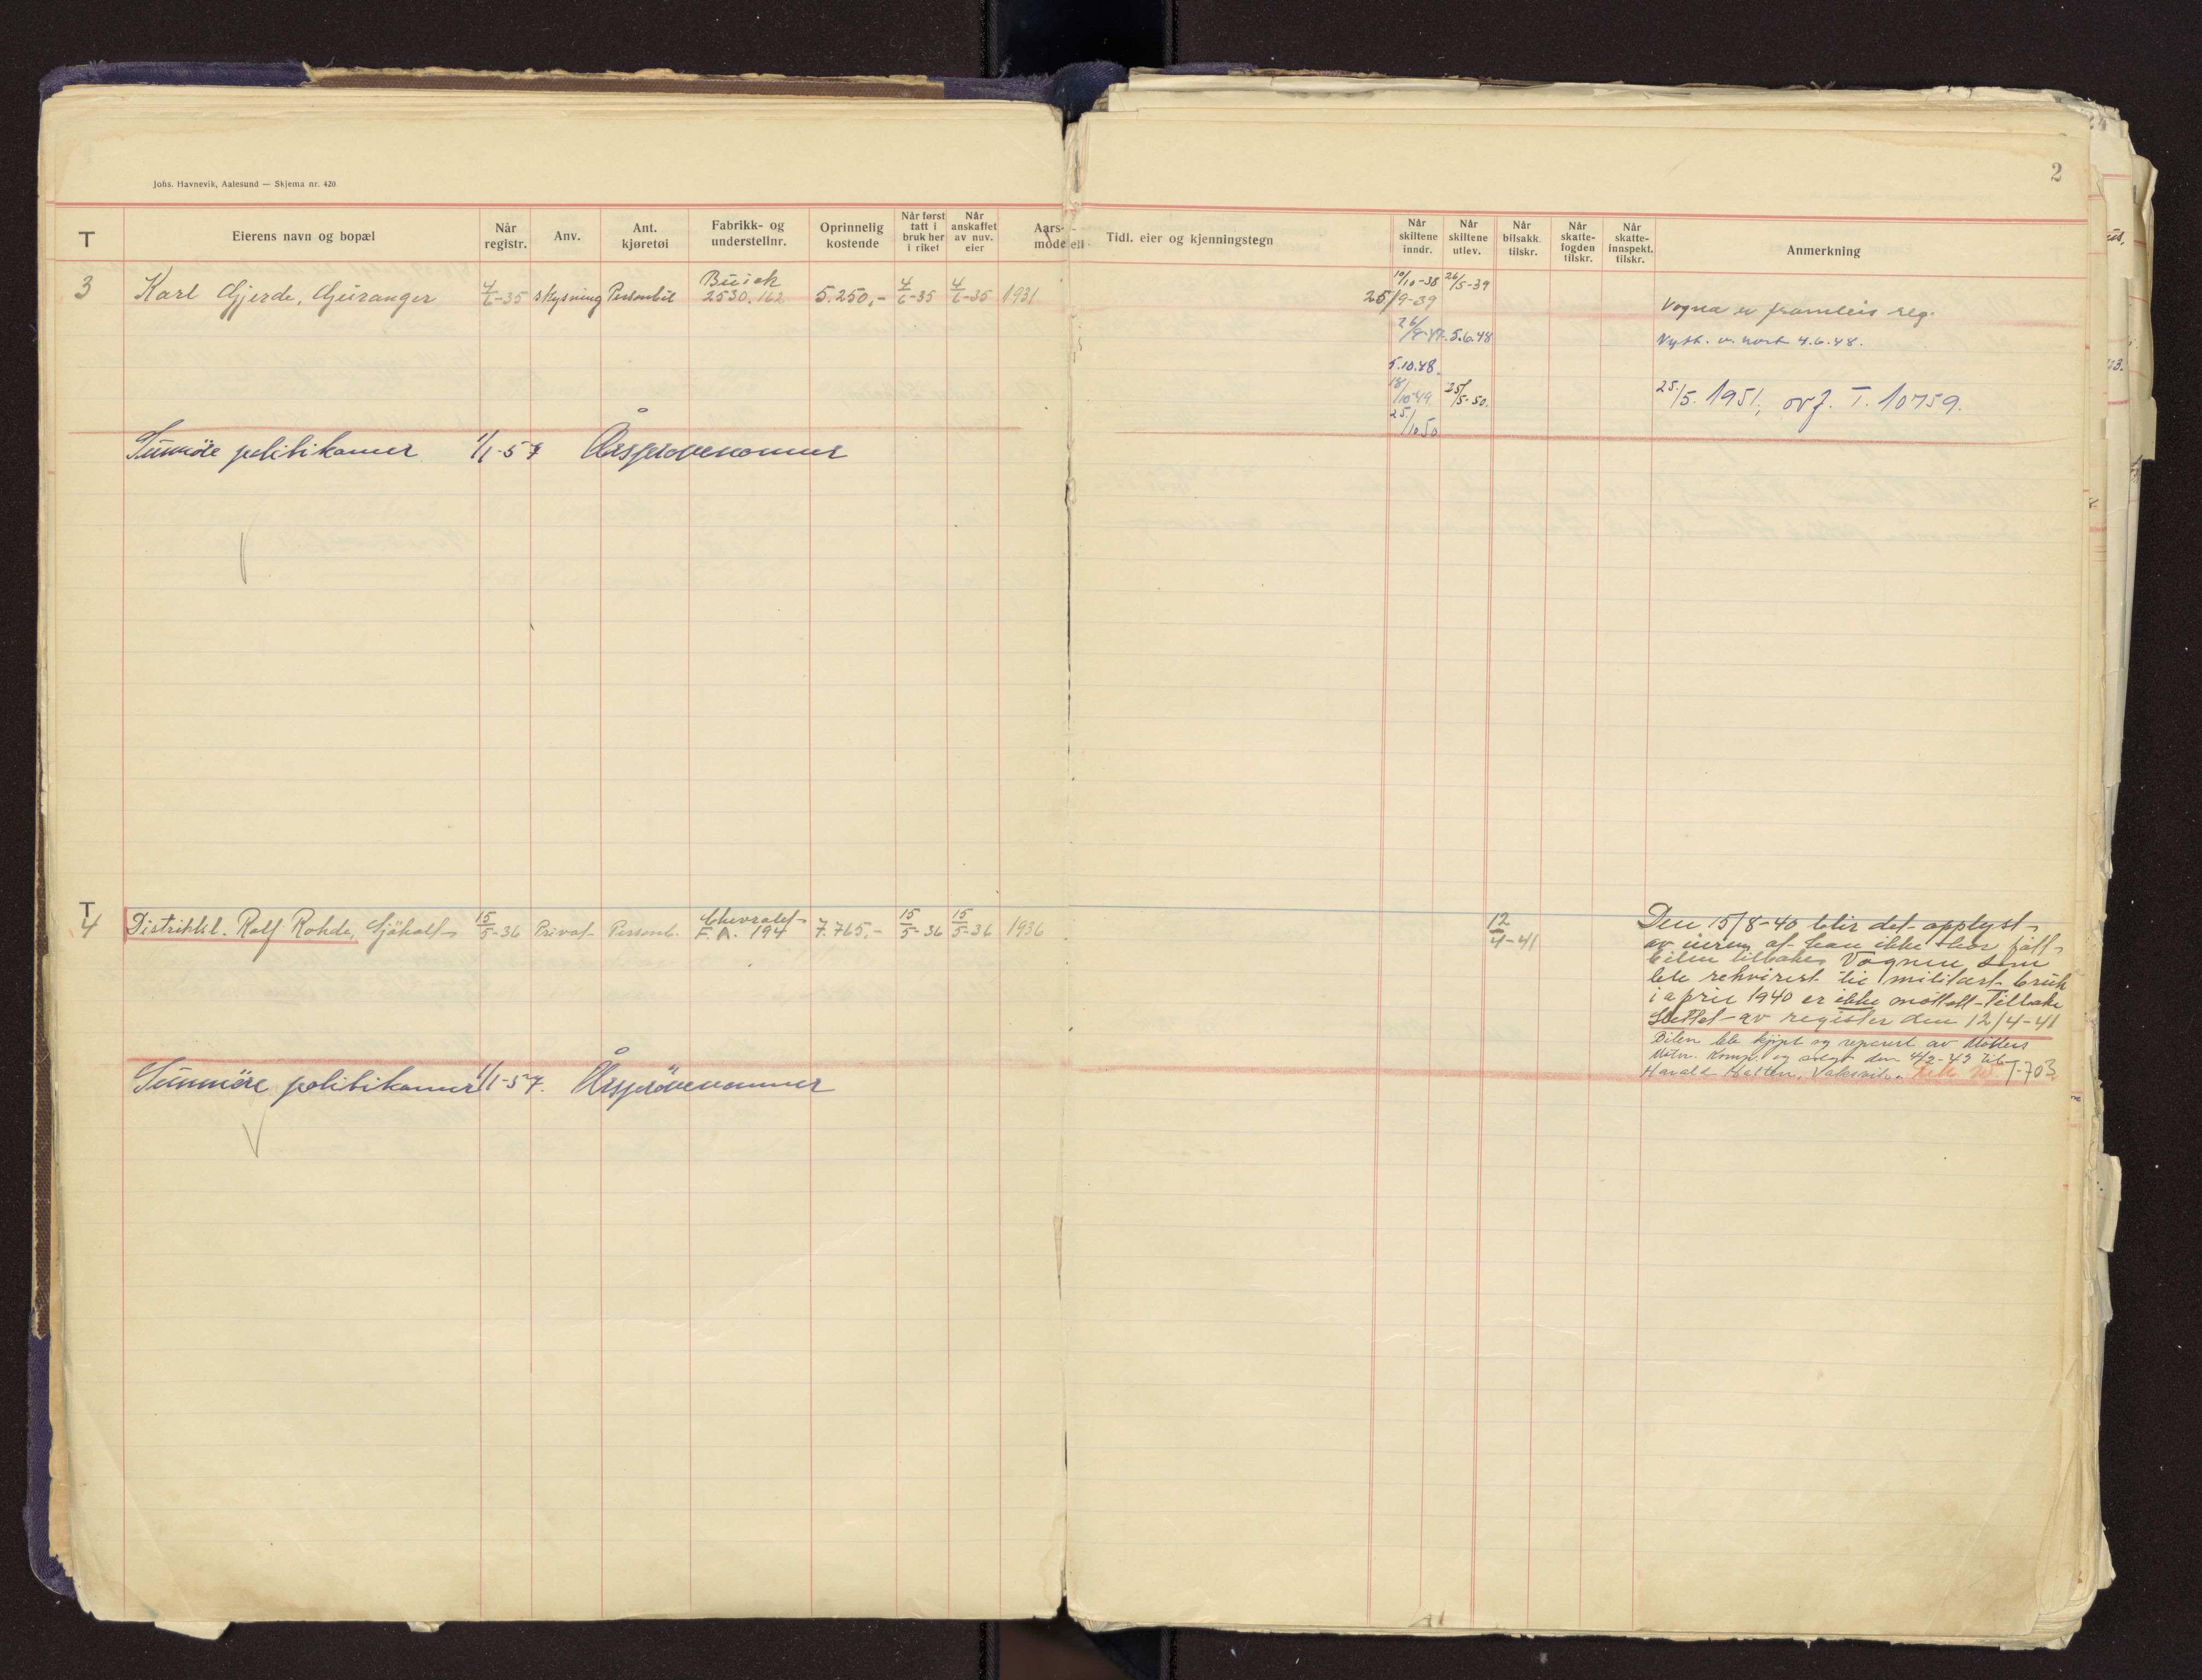 Johs. Havnevik, Aalesund — Skjema nr. 420
2
T
Eierens navn og bopæl
Når registr.
Anv.
Ant. kjøretøi
Fabrikk- og understellnr.
Oprinnelig kostende
Når først tatt i bruk her i riket
Når anskaffet av nuv. eier
Aars-modell
Tidl. eier og kjenningstegn
Når skiltene inndr.
Når skiltene utlev.
Når bilsakk. tilskr.
Når skatte-fogden tilskr.
Når skatte-innspekt. tilskr.
Anmerkning
3 Karl Gjerde, Geiranger 4/6-35 skysning Personbil Buick 2530.162 5.250,- 4/6-35 4/6-35 1931
10/10-38 26/5-39
25/9-39 Vogna er framleis reg.
26/9-47. 5.6.48 Vytt. v. kort 4.6.48.
5.10.48.
18/10-49 25/5-50. 25./5. 1951, ovf. T. 10759.
25./10.50
Sunmöre politikamer 1/1-57 Årsprövenommer
T
4 Distriktsl. Rolf Rohde, Sjöholt 15/5-36 Privat Personb. Chevrolet F.A. 194 7.765,- 15/5-36 15/5-36 1936
12/4-41
Den 15/8-40 blir det opplyst
av at han ikke har fått
bilen tilbake. Vognen som
ble rekvirert til militært bruk
i april 1940 er ikke mottatt tilbake
Slettet av register den 12/4-41
Bilen ble kjøpt og reparert av Möllers
Motor. Komp. og solgt den 4/2-43 til
Harald Valsvik. T-703
Sunmöre politikamer 1/1-57. Årsprövenommer